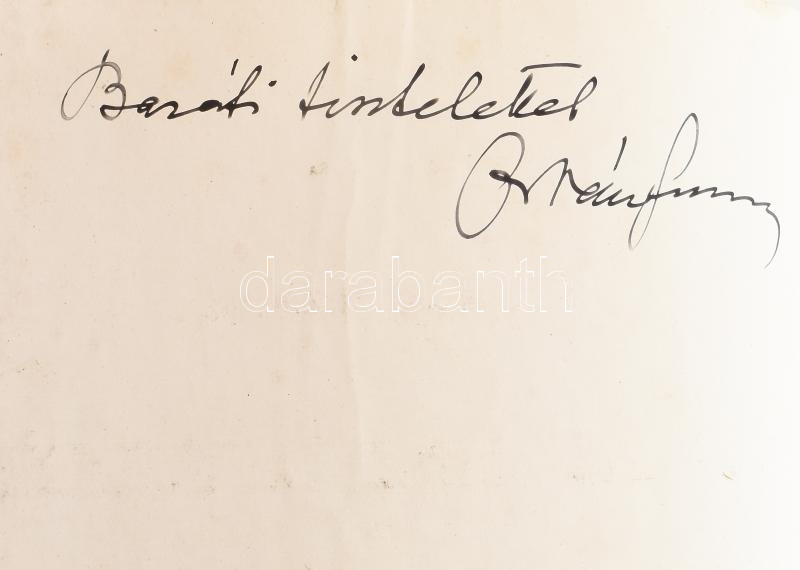 Baráti tisztelettel
darabanth